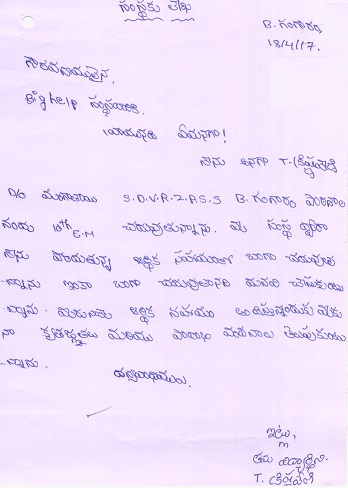 సంస్థకు లేఖ
B. గంగారం,
18/4/17.
గౌరవనీయులైన,
Big help సంస్థవారికి.
వ్రాయునది ఏమనగా!
నేను అనగా T.
D/o S.D.V.R.Z.P.S.S B. గంగారం పాఠశాల
నందు 10th E.M చదువుతున్నాను. మీ సంస్థ ద్వారా
నేను పొందుతున్న ఆర్థిక సహాయంతో బాగా చదువుతు
-న్నాను ఇంకా బాగా చదువుతానని మనవి చేసుకుంటు
-న్నాను. ఆర్థిక సహాయం మీకు
నా కృతజ్ఞతలు మరియు వందనాలు తెలుపుకుంటు
-న్నాను.
ధన్యవాదములు.
ఇట్లు,
తమ విద్యార్థిని.
T.